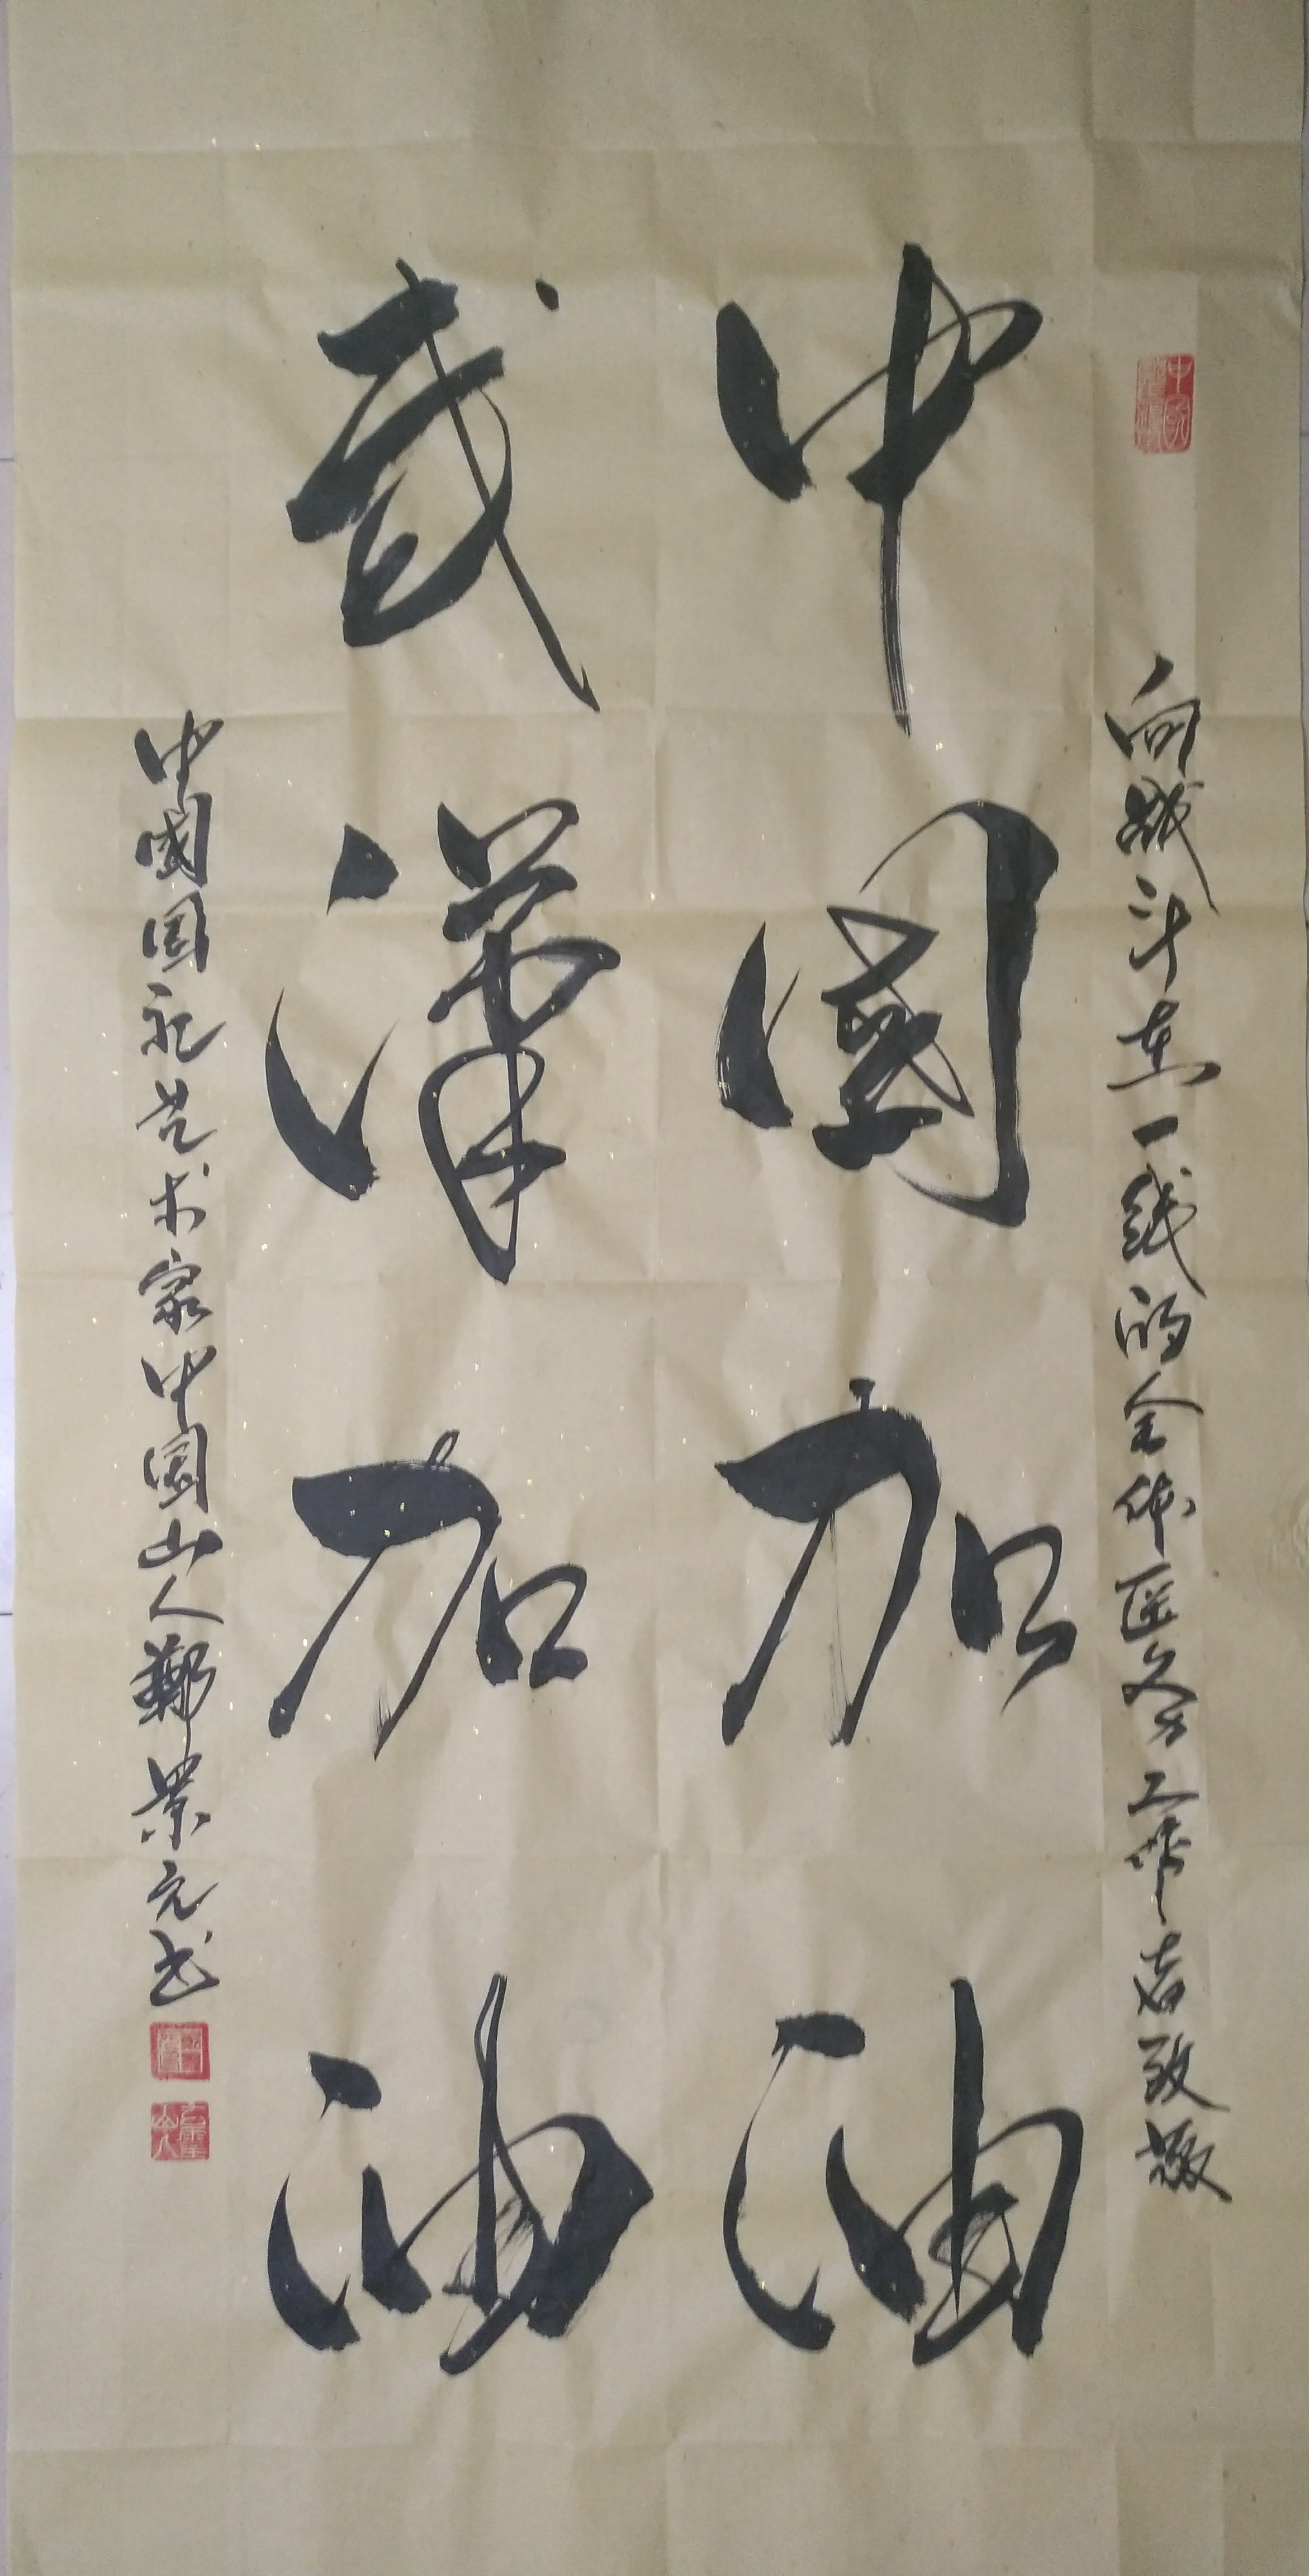 向战斗在一线的全体医务工作者致敬
中國加油
武漢加油
中國国礼艺术家中国山人鄭景元书